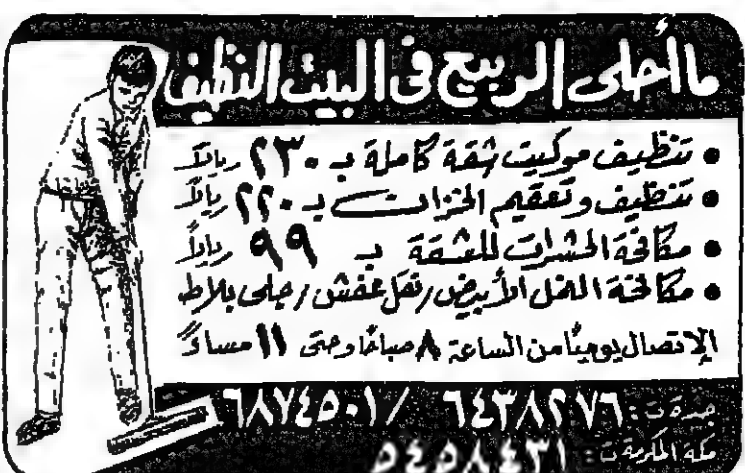 ما أحلى الربيع فى البيت النظيف
• تنظيف موكيت شقة كاملة بـ ٢٣٠ ريالاً
• تنظيف وتعقيم الخزانات بـ ٢٢٠ ريالاً
• مكافحة الحشرات للشقة بـ ٩٩ ريالاً
• مكافحة النمل الأبيض / نقل عفش / جلى بلاط
الإتصال يومياً من الساعة ٨ صباحاً وحتى ١١ مساءً
جدة ت: ٦٤٣٨٢٧٦ / ٦٨٧٤٥٠١
مكة المكرمة ت: ٥٤٥٨٤٣١